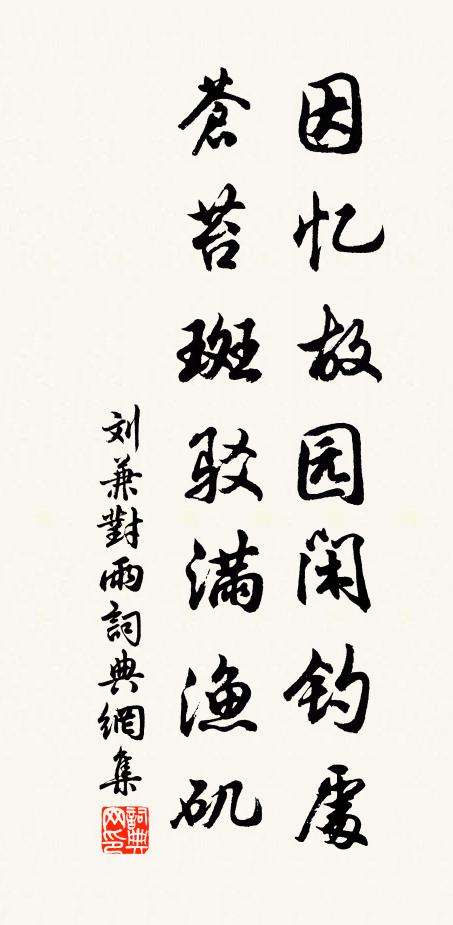 因忆故园闲钓處
蒼苔斑驳满渔矶
刘兼對雨詞典網集
詞典网印